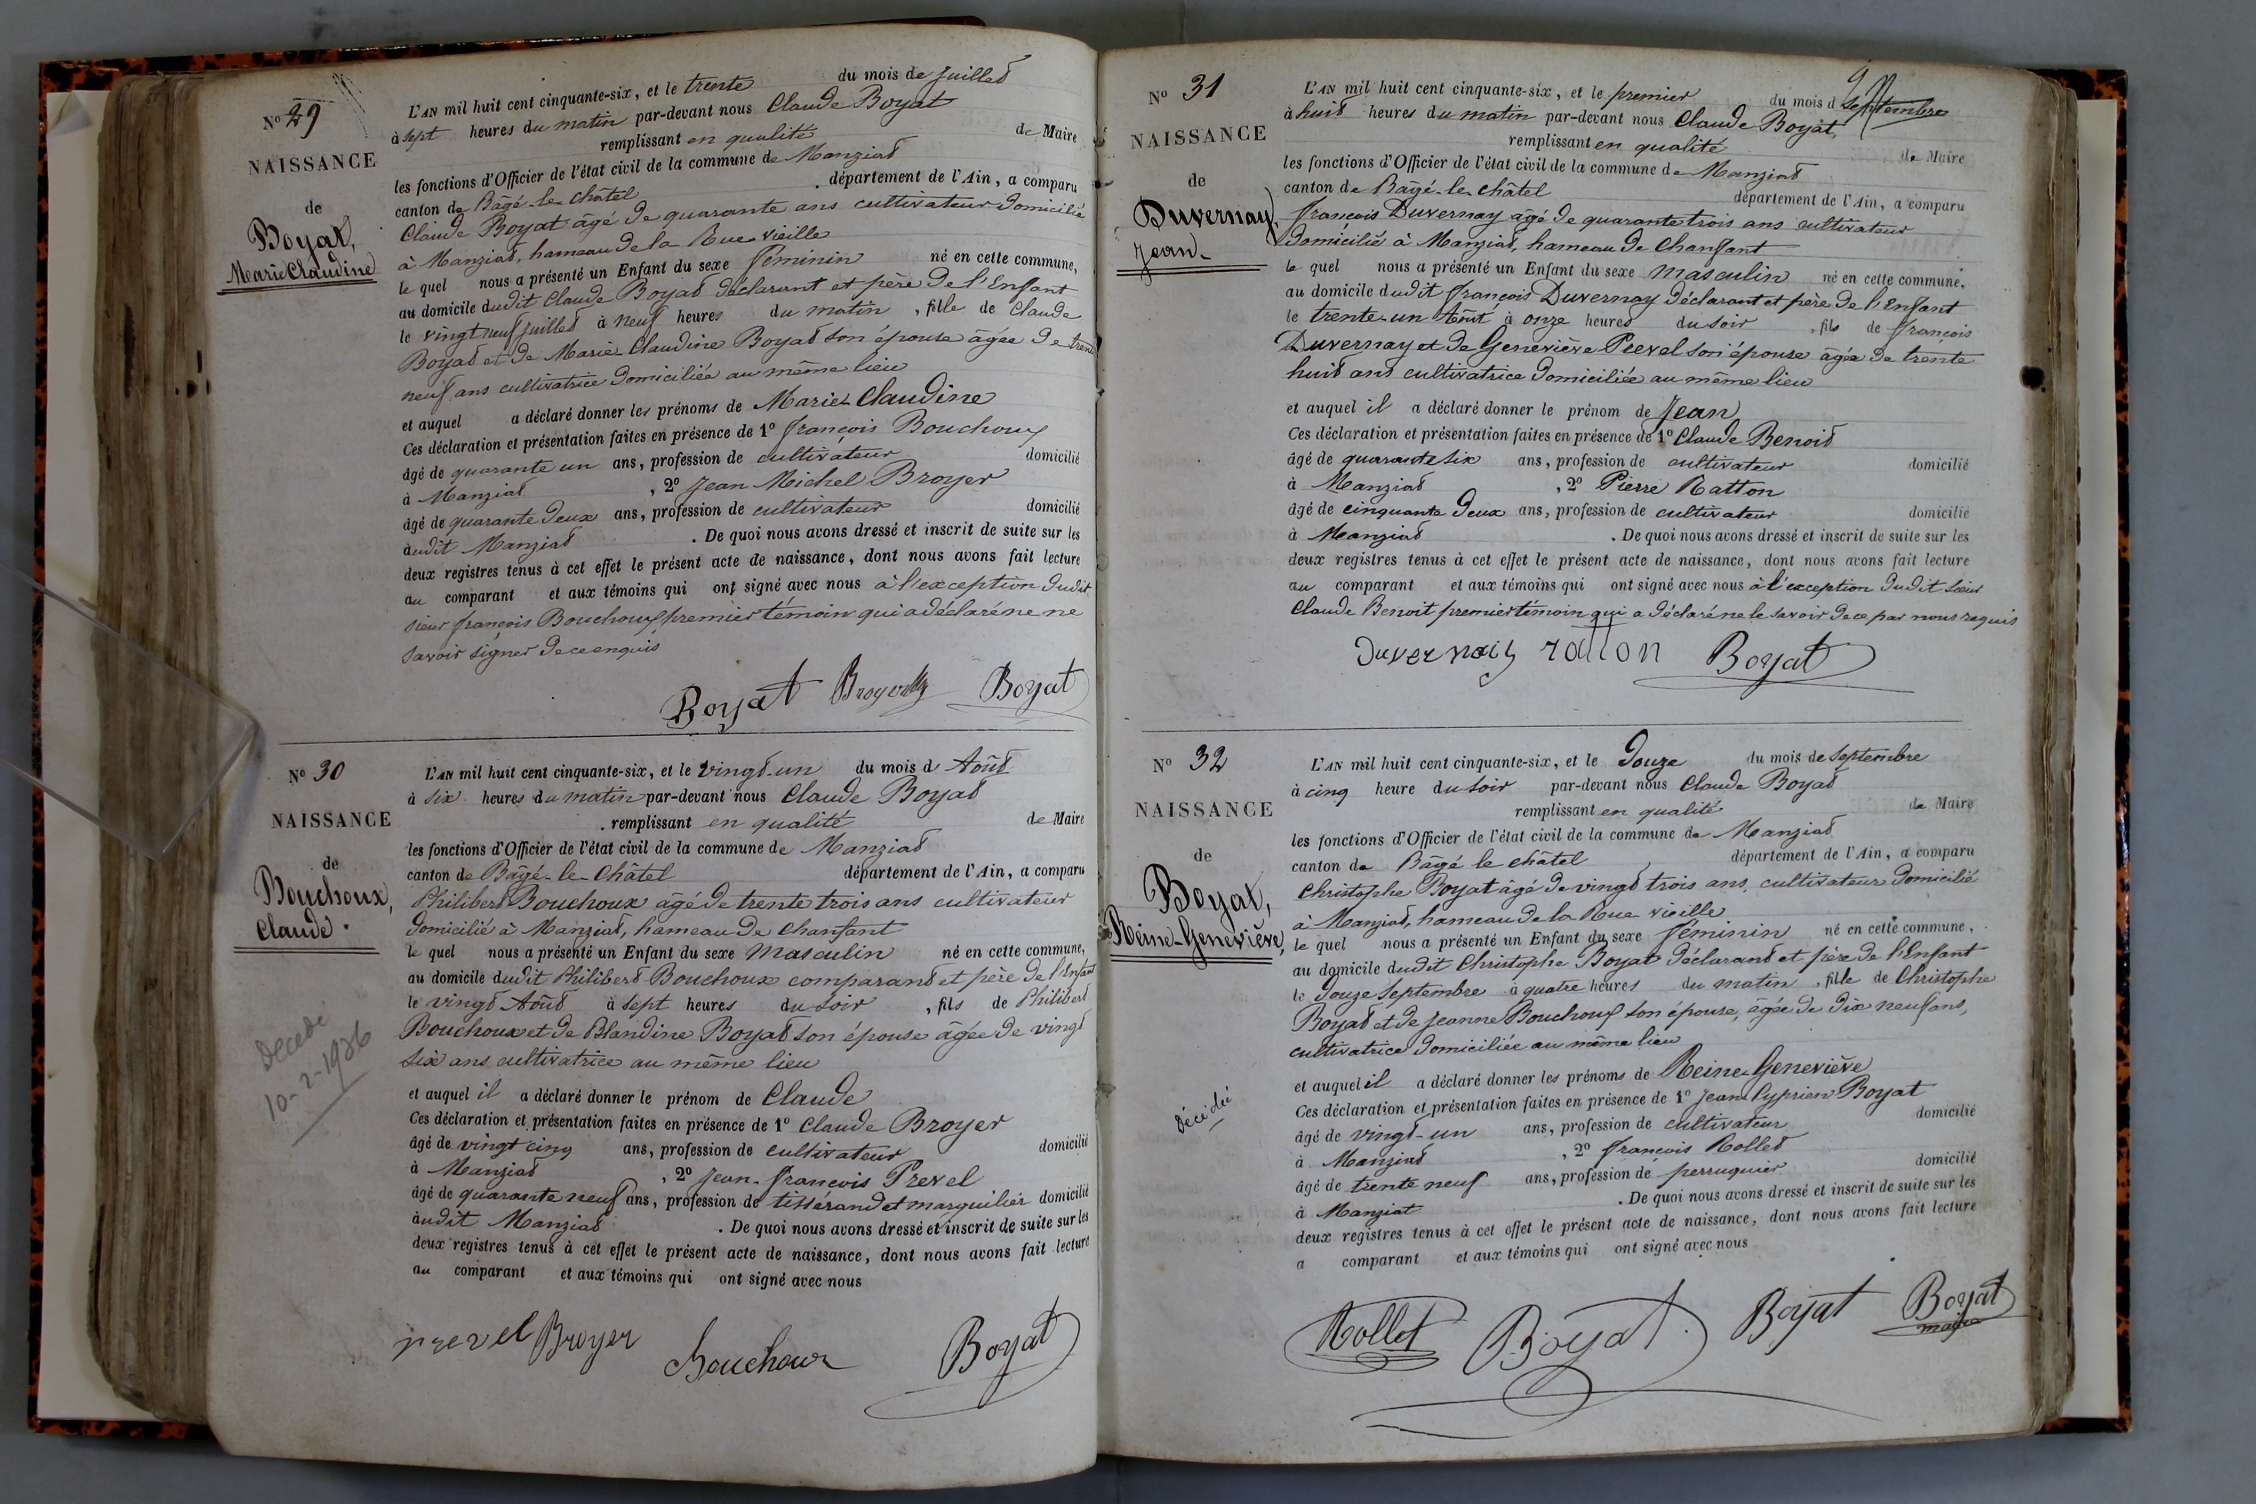 Nº 29
NAISSANCE
de
Boyat,
Marie Claudine
L'AN mil huit cent cinquante-six, et le trente du mois de Juillet
à sept heures du matin par-devant nous Claude Boyat
remplissant en qualité de Maire
les fonctions d'Officier de l'état civil de la commune de Manziat
canton de Bâgé-le-Châtel . département de l'Ain, a comparu
Claude Boyat âgé de quarante ans cultivateur domicilié
à Manziat, hameau de la Rue vieille
le quel nous a présenté un Enfant du sexe féminin né en cette commune,
au domicile dudit Claude Boyat déclarant et père de l'Enfant
le vingt neuf juillet à neuf heures du matin , fille de Claude
Boyat et de Marie Claudine Boyat son épouse âgée de trente
neuf ans cultivatrice domiciliée au même lieu
et auquel a déclaré donner les prénoms de Marie Claudine
Ces déclaration et présentation faites en présence de 1º françois Bouchoux
âgé de quarante un ans, profession de cultivateur domicilié
à Manziat , 2º Jean Michel Broyer
âgé de quarante deux ans, profession de cultivateur domicilié
audit Manziat . De quoi nous avons dressé et inscrit de suite sur les
deux registres tenus à cet effet le présent acte de naissance, dont nous avons fait lecture
au comparant et aux témoins qui ont signé avec nous à l'exception dudit
sieur françois Bouchoux premier témoin qui a déclaré ne ne
savoir signer de ce enquis
Boyat Broyer Boyat
Nº 30
NAISSANCE
de
Bouchoux,
Claude.
Décédé
10-2-1936
L'AN mil huit cent cinquante-six, et le vingt-un du mois d Août
à six heures du matin par-devant nous Claude Boyat
. remplissant en qualité de Maire
les fonctions d'Officier de l'état civil de la commune de Manziat
canton de Bâgé-le-Châtel département de l'Ain, a comparu
Philibert Bouchoux âgé de trente trois ans cultivateur
domicilié à Manziat, hameau de Chanfant
le quel nous a présenté un Enfant du sexe masculin né en cette commune,
au domicile dudit Philibert Bouchoux comparant et père de l'Enfant
le vingt Août à sept heures du soir , fils de Philibert
Bouchoux et de Blandine Boyat son épouse âgée de vingt
six ans cultivatrice au même lieu
et auquel il a déclaré donner le prénom de Claude
Ces déclaration et présentation faites en présence de 1º Claude Broyer
âgé de vingt cinq ans, profession de cultivateur domicilié
à Manziat , 2º Jean-françois Prevel
âgé de quarante neuf ans, profession de tissérand et marguilier domicilié
audit Manziat . De quoi nous avons dressé et inscrit de suite sur les
deux registres tenus à cet effet le présent acte de naissance, dont nous avons fait lecture
au comparant et aux témoins qui ont signé avec nous
prevel Broyer Bouchoux Boyat
Nº 31
NAISSANCE
de
Duvernay,
Jean
L'AN mil huit cent cinquante-six, et le premier du mois d septembre
à huit heures du matin par-devant nous Claude Boyat
remplissant en qualité de Maire
les fonctions d'Officier de l'état civil de la commune de Manziat
canton de Bâgé-le-Châtel département de l'Ain, a comparu
françois Duvernay âgé de quarante trois ans cultivateur
domicilié à Manziat, hameau de Chanfant
le quel nous a présenté un Enfant du sexe masculin né en cette commune,
au domicile dudit françois Duvernay déclarant et père de l'Enfant
le trente-un Août à onze heures du soir , fils de françois
Duvernay et de Geneviève Prevel son épouse âgée de trente
huit ans cultivatrice domiciliée au même lieu
et auquel il a déclaré donner le prénom de Jean
Ces déclaration et présentation faites en présence de 1º Claude Benoit
âgé de quarante six ans, profession de cultivateur domicilié
à Manziat , 2º Pierre Ratton
âgé de cinquante deux ans, profession de cultivateur domicilié
à Manziat . De quoi nous avons dressé et inscrit de suite sur les
deux registres tenus à cet effet le présent acte de naissance, dont nous avons fait lecture
au comparant et aux témoins qui ont signé avec nous à l'exception dudit sieur
Claude Benoit premier témoin qui a déclaré ne le savoir de ce par nous requis
Duvernay ratton Boyat
Nº 32
NAISSANCE
de
Boyat,
Reine-Geneviève,
décédée
L'AN mil huit cent cinquante-six, et le douze du mois de septembre
à cinq heure du soir par-devant nous Claude Boyat
remplissant en qualité de Maire
les fonctions d'Officier de l'état civil de la commune de Manziat
canton de Bâgé le châtel , département de l'Ain, a comparu
Christophe Boyat âgé de vingt trois ans, cultivateur domicilié
à Manziat, hameau de la Rue vieille
le quel nous a présenté un Enfant du sexe féminin né en cette commune,
au domicile dudit Christophe Boyat déclarant et père de l'Enfant
le douze septembre à quatre heures du matin , fille de Christophe
Boyat et de Jeanne Bouchoux son épouse, âgée de dix neuf ans,
cultivatrice domiciliée au même lieu
et auquel il a déclaré donner les prénoms de Reine-Geneviève
Ces déclaration et présentation faites en présence de 1º Jean Cyprien Boyat
âgé de vingt-un ans, profession de cultivateur domicilié
à Manziat , 2º françois Rollet
âgé de trente neuf ans, profession de perruquier domicilié
à Manziat . De quoi nous avons dressé et inscrit de suite sur les
deux registres tenus à cet effet le présent acte de naissance, dont nous avons fait lecture
a comparant et aux témoins qui ont signé avec nous
Rollet Boyat Boyat Boyat
maire